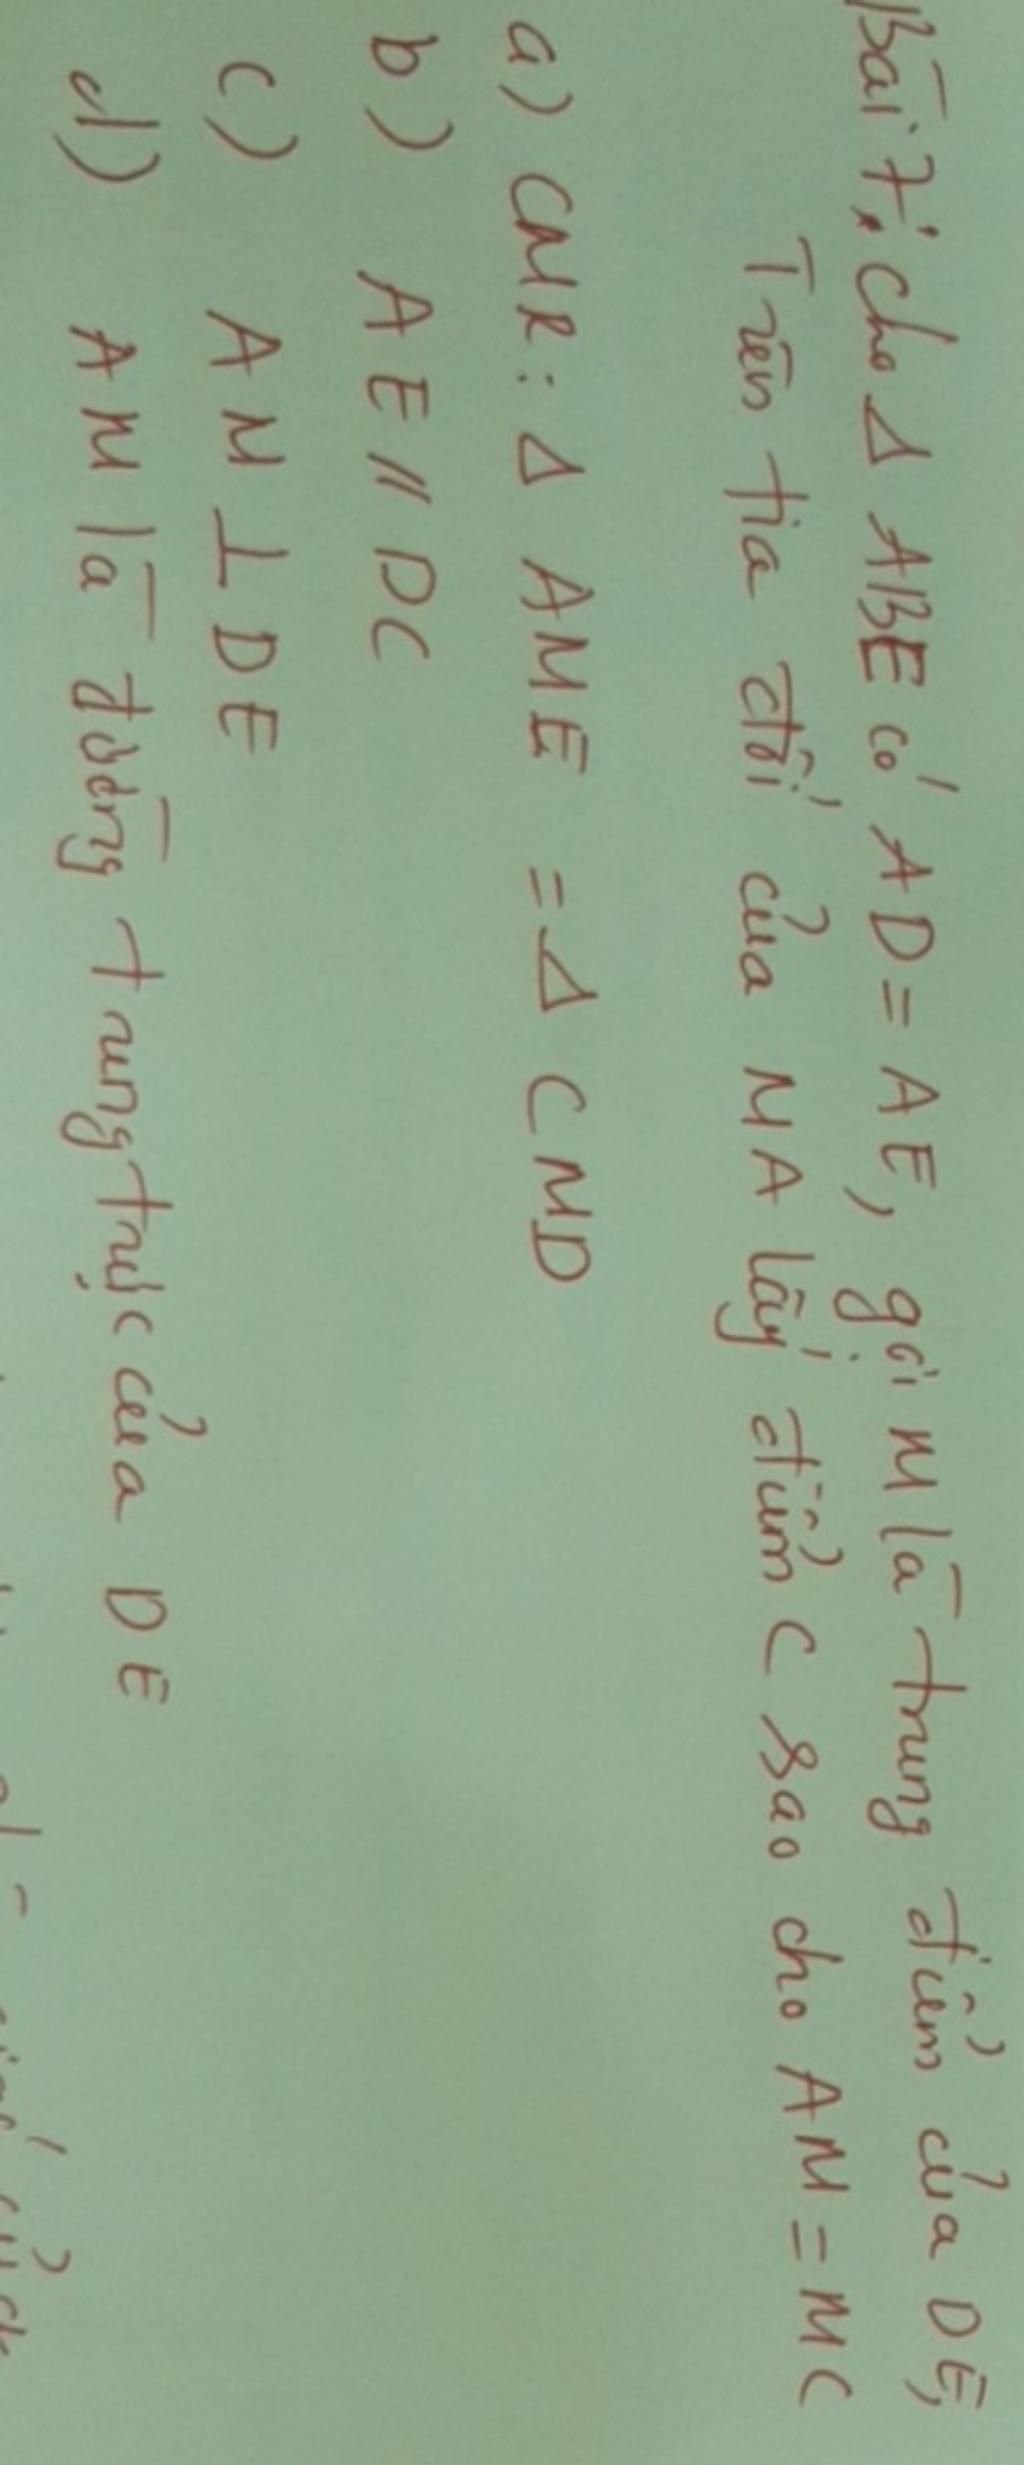 Bài 7: Cho Δ ABE có AD = AE, gọi M là trung điểm của DE,
Trên tia đối của MA lấy điểm C sao cho AM = MC
a) CMR: Δ AME = Δ CMD
b) AE // DC
c) AM ⊥ DE
d) AM là đường trung trực của DE